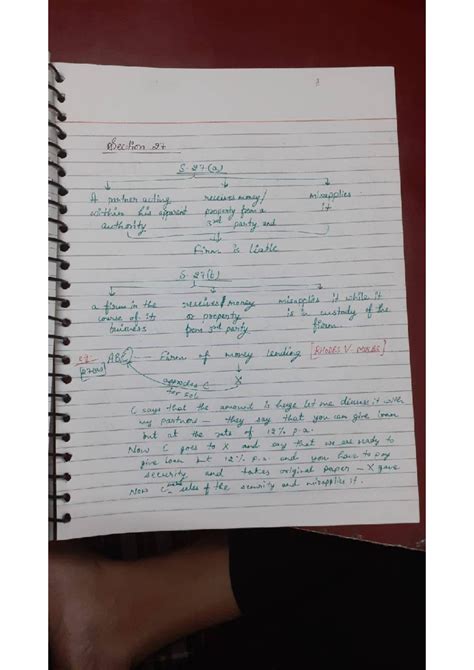 Section 27
S. 27(a)
A partner acting receives money/ misapplies
within his apparent property from a it
authority 3rd party and
Firm is liable
S. 27(b)
a firm in the receives money misapplies it while it
course of its or property is in custody of the
business from 3rd party firm.
ABC — Firm of money lending [RHODES V. MOULES]
approaches C X
for
C says that the amount is huge let me discuss it with
my partners — they say that you can give loan
but at the rate of 12% p.a.
Now C goes to X and say that we are ready to
give loan but 12% p.a. and you have to pay
security and takes original paper — X gave
Now C sales of the security and misapplies it.